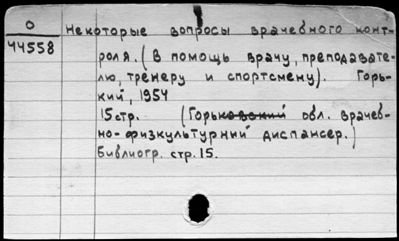 О
44558
Некоторые вопросы врачебного конт-
роля. (В помощь врачу, преподавате-
лю, тренеру и спортсмену). Горь-
кий, 1954
15стр. (Горьковский обл. врачеб-
но-физкультурний диспансер.)
Библиогр. стр. 15.